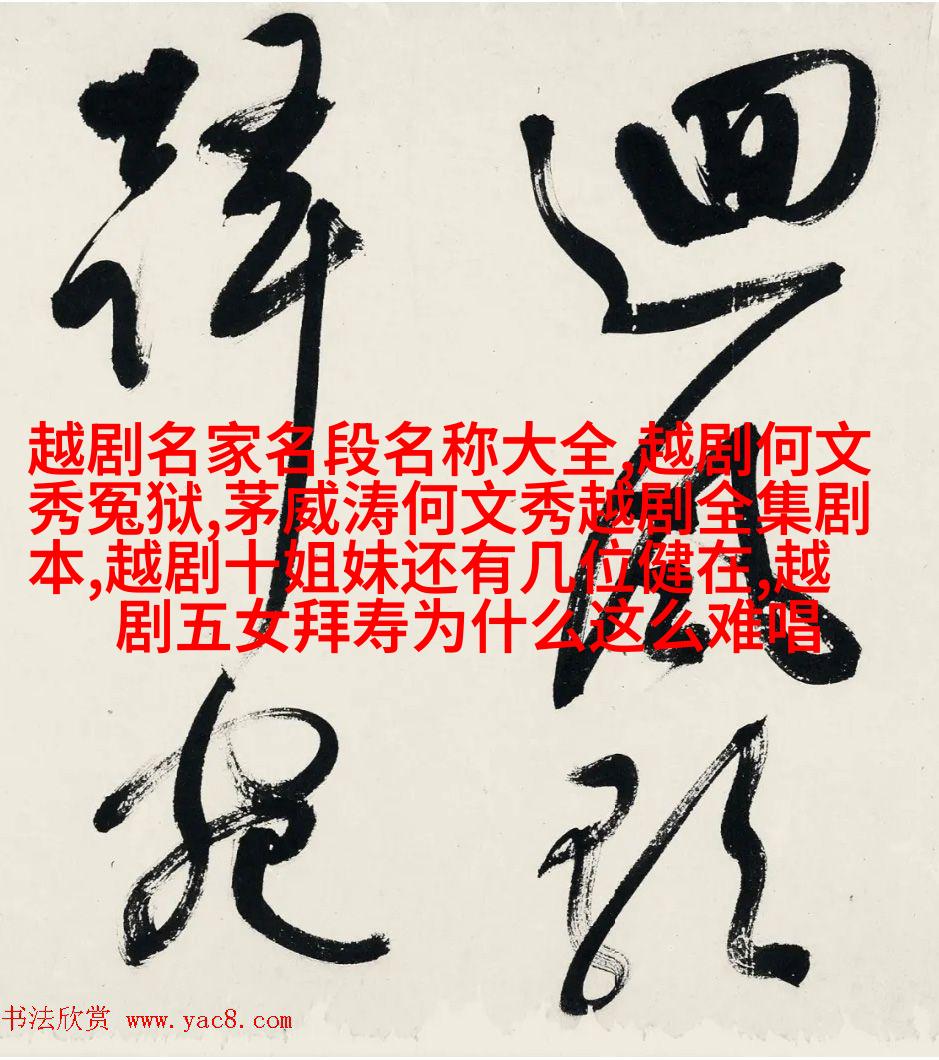 迴風
越剧名家名段名称大全,越剧何文
秀冤狱,茅威涛何文秀越剧全集剧
本,越剧十姐妹还有几位健在,越
剧五女拜寿为什么这么难唱
书法欣赏 www.yac8.com